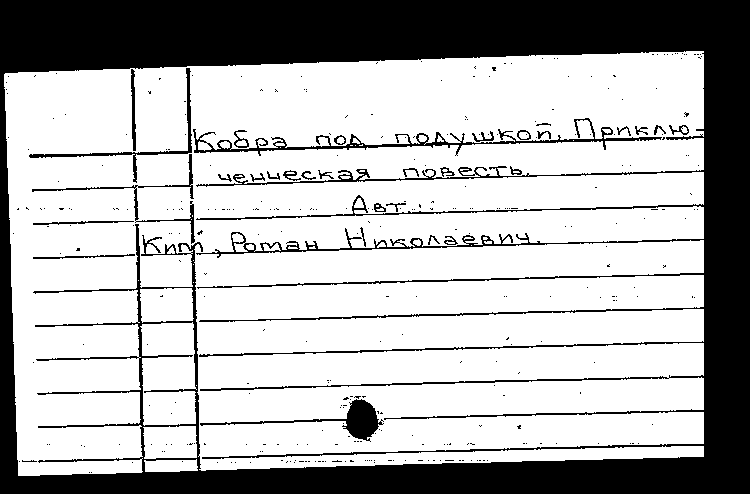 Кобра под подушкой. Приклю-
ченческая повесть.
Авт.:
Ким, Роман Николаевич.